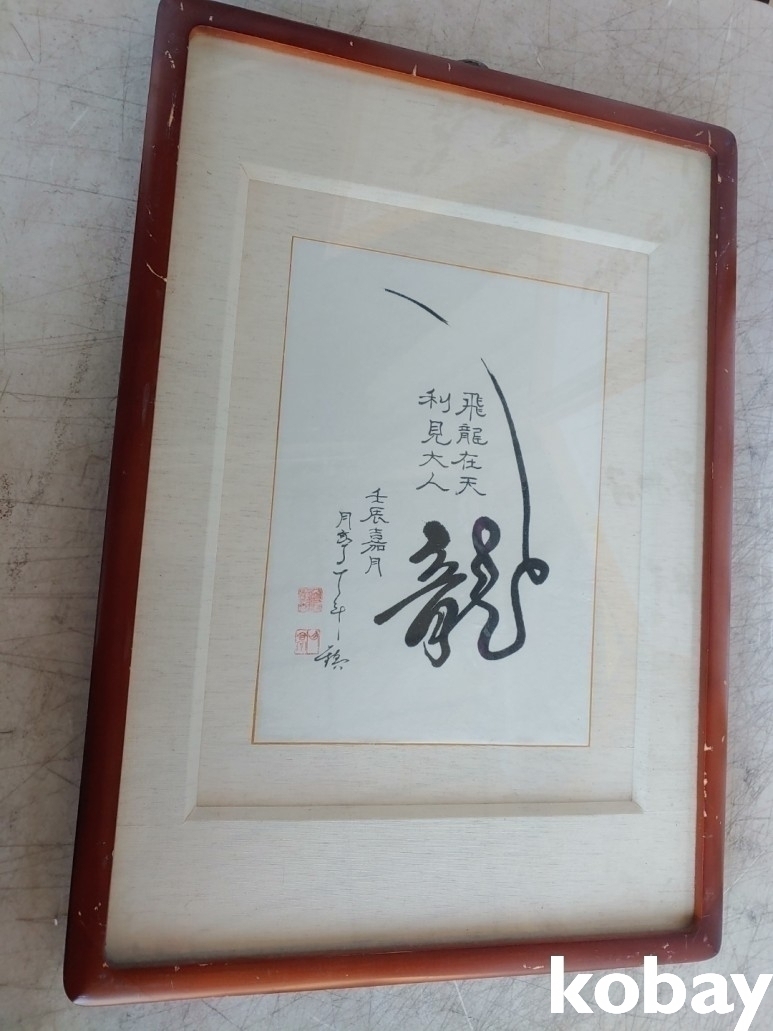 飛龍在天
利見大人
龍
壬辰嘉月
kobay